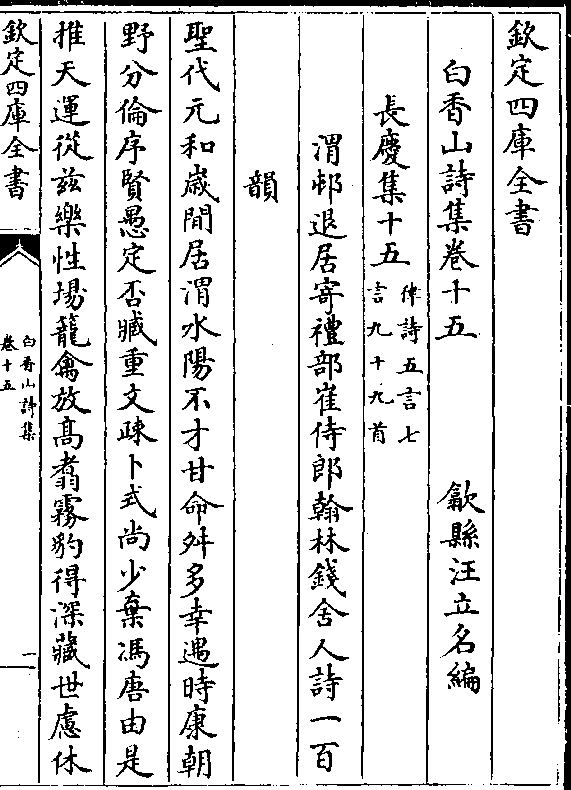 欽定四庫全書
白香山詩集卷十五　歙縣汪立名編
長慶集十五律詩五言七言九十九首
渭邨退居寄禮部崔侍郎翰林錢舍人詩一百
韻
聖代元和歲閒居渭水陽不才甘命舛多幸遇時康朝
野分倫序賢愚定否臧重文疎卜式尚少棄馮唐由是
推天運從兹樂性場籠禽放髙翥霧豹得深藏世慮休
欽定四庫全書
白香山詩集
卷十五
一